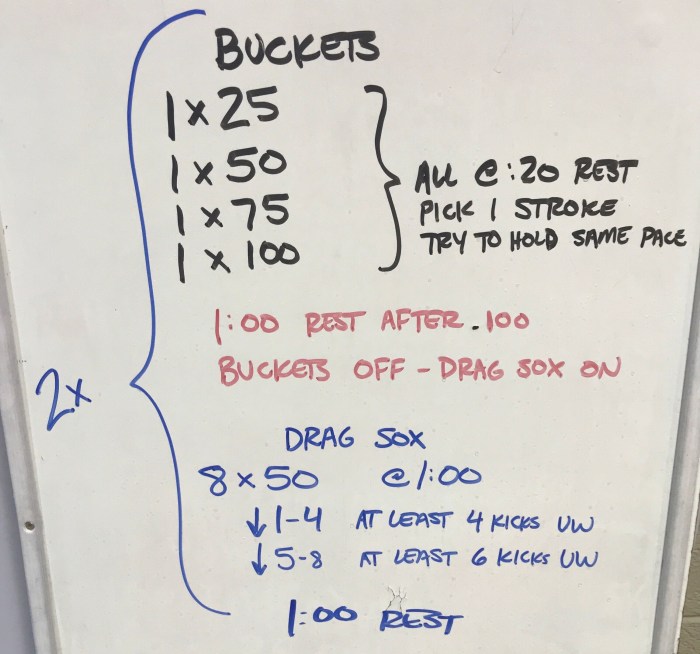 BUCKETS
1 x 25
1 x 50
1 x 75
1 x 100
ALL @ :20 REST
PICK 1 STROKE
TRY TO HOLD SAME PACE
1:00 REST AFTER .100
BUCKETS OFF - DRAG SOX ON
2x
DRAG SOX
8 x 50 @ 1:00
↓ 1-4 AT LEAST 4 KICKS UW
↓ 5-8 AT LEAST 6 KICKS UW
1:00 REST